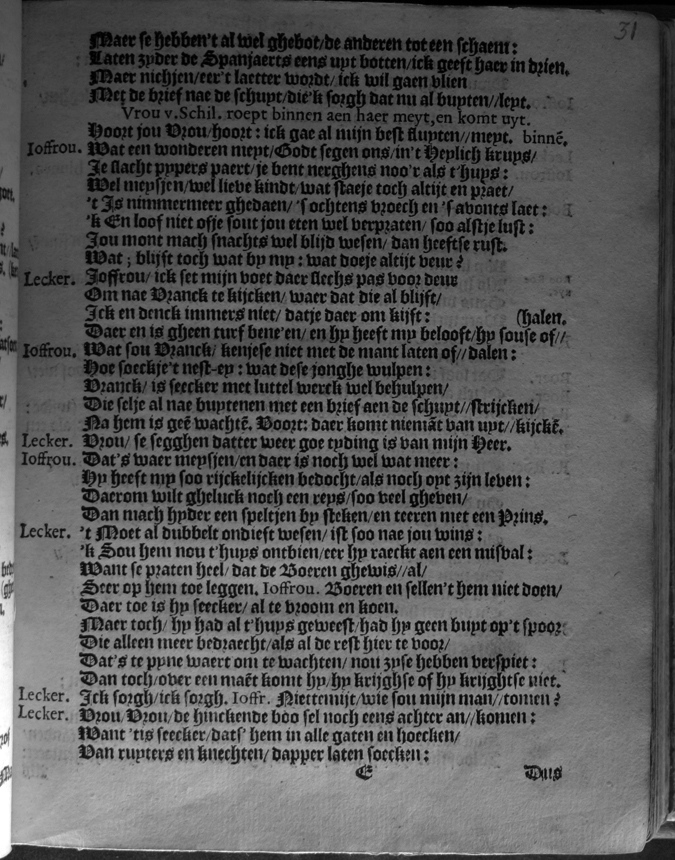 31
Maer se hebben't al wel ghebot/de anderen tot een schaem:
Laten zyder de Spanjaerts eens uyt botten/ick geeft haer in drien.
Maer nichjen/eer't laetter wordt/ick wil gaen vlien
Met de brief nae de schuyt/die'k sorgh dat nu al buyten//leyt.
Vrou v.Schil. roept binnen aen haer meyt,en komt uyt.
Hoort jou Vrou/hoort: ick gae al mijn best fluyten//meyt. binnē.
Ioffrou. Wat een wonderen meyt/Godt segen ons/in't Heylich kruys/
Je slacht pypers paert/je bent nerghens noo'r als t'huys:
Wel meysjen/wel lieve kindt/wat staeje toch altijt en praet/
't Is nimmermeer ghedaen/'s ochtens vroech en 's avonts laet:
'k En loof niet ofje sout jou eten wel verpraten/soo alstje lust:
Jou mont mach snachts wel blijd wesen/dan heeftse rust.
Wat; blijft toch wat by my: wat doeje altijt veur?
Lecker. Joffrou/ick set mijn voet daer slechs pas voor deur
Om nae Vranck te kijcken/waer dat die al blijft/
Ick en denck immers niet/datje daer om kijft: (halen.
Daer en is gheen turf bene'en/en hy heeft my belooft/hy souse of//
Ioffrou. Wat sou Vranck/kenjese niet met de mant laten of//dalen:
Hoe soeckje't nest-ey: wat dese jonghe wulpen:
Vranck/is seecker met luttel werck wel behulpen/
Die selje al nae buytenen met een brief aen de schuyt//strijcken/
Na hem is geē wachtē. Voort: daer komt niemāt van uyt//kijckē.
Lecker. Vrou/se segghen datter weer goe tyding is van mijn Heer.
Ioffrou. Dat's waer meysjen/en daer is noch wel wat meer:
Hy heeft my soo rijckelijcken bedocht/als noch oyt zijn leven:
Daerom wilt gheluck noch een reys/soo veel gheven/
Dan mach hyder een speltjen by steken/en teeren met een Prins.
Lecker. 't Moet al dubbelt ondieft wesen/ist soo nae jou wins:
'k Sou hem nou t'huys ontbien/eer hy raeckt aen een misval:
Want se praten heel/dat de Boeren ghewis//al/
Seer op hem toe leggen. Ioffrou. Boeren en sellen't hem niet doen/
Daer toe is hy seecker/al te vroom en koen.
Maer toch/hy had al t'huys geweest/had hy geen buyt op't spoor
Die alleen meer bedraecht/als al de rest hier te voor/
Dat's te pyne waert om te wachten/nou zyse hebben verspiet:
Dan toch/over een maēt komt hy/hy krijghse of hy krijghtse niet.
Lecker. Ick sorgh/ick sorgh. Ioffr. Niettemijt/wie sou mijn man//tomen?
Lecker. Vrou/Vrou/de hinckende boo sel noch eens achter an//komen:
Want 'tis seecker/dats' hem in alle gaten en hoecken/
Van ruyters en knechten/dapper laten soecken:
E Dus